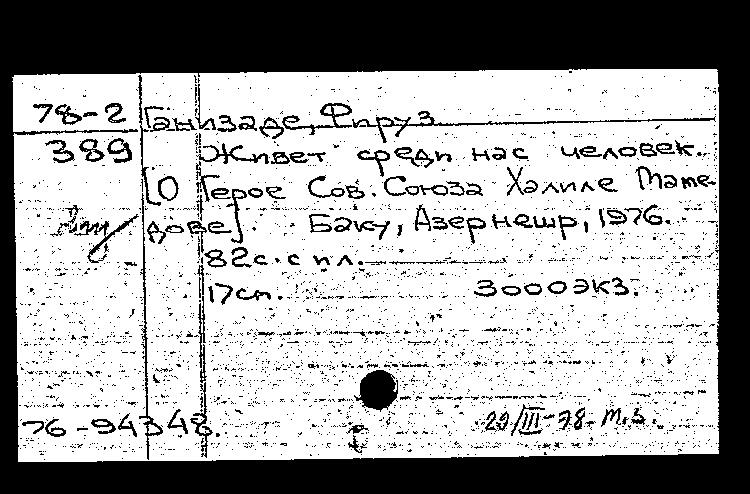 78-2 Ганизаде, Фируз
389 Живет среди нас человек.
[О Герое Сов. Союза Халиле Маме-
дове]. Баку, Азернешр, 1976.
82с. с ил.
17см. 3000экз.
76-94348. 29/III-78 м.з.